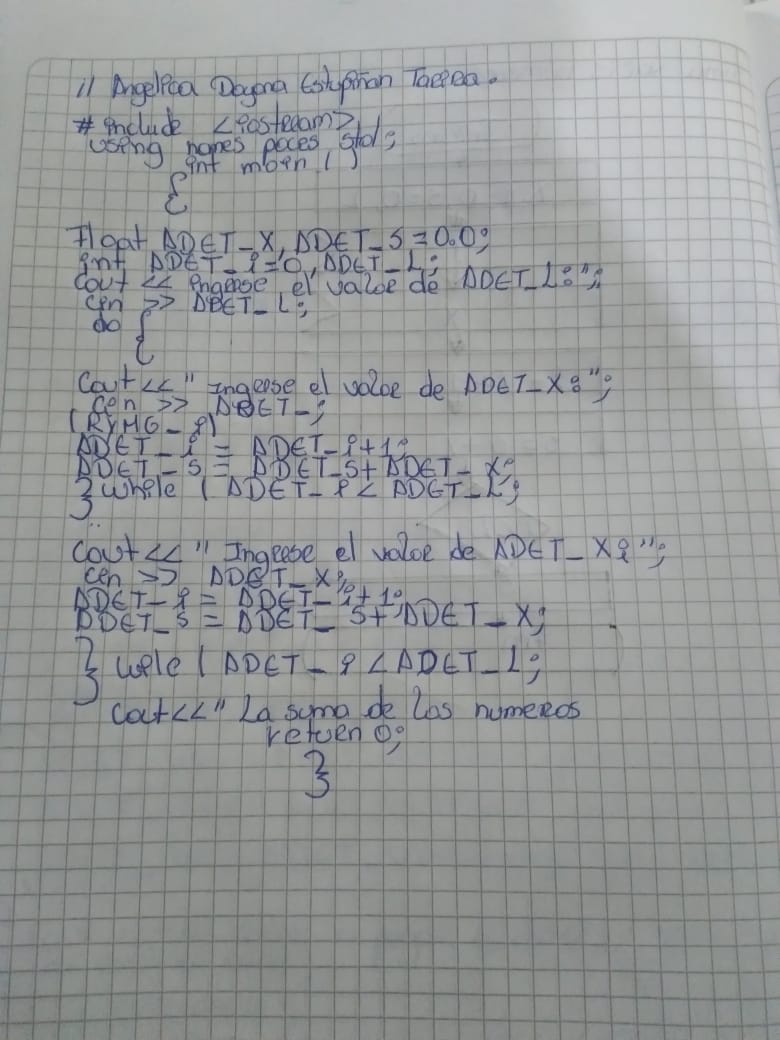 // Angelica Dayana Estupiñan Taicea.
# include <iosteeam>
using names paces std;
int main ( )
{
Float ADET_X, ADET_S = 0.0;
int ADET_i=0, ADET_L;
Cout << ingeese el valoe de ADET_L:";
cin >> ADET_L;
do {
Cout<<" Ingeese el valoe de ADET_X:";
cin >> ADET_;
(RYMG_i)
ADET_i = ADET_i+1;
ADET_S = ADET_S+ADET_X;
} while ( ADET_i < ADET_L;
Cout<<" Ingeese el valoe de ADET_X:";
cin >> ADET_X;
ADET_i = ADET_i+1;
ADET_S = ADET_S+ADET_X;
} wile ( ADET_i < ADET_L;
Cout<<" La suma de los numeros
retuen 0;
}